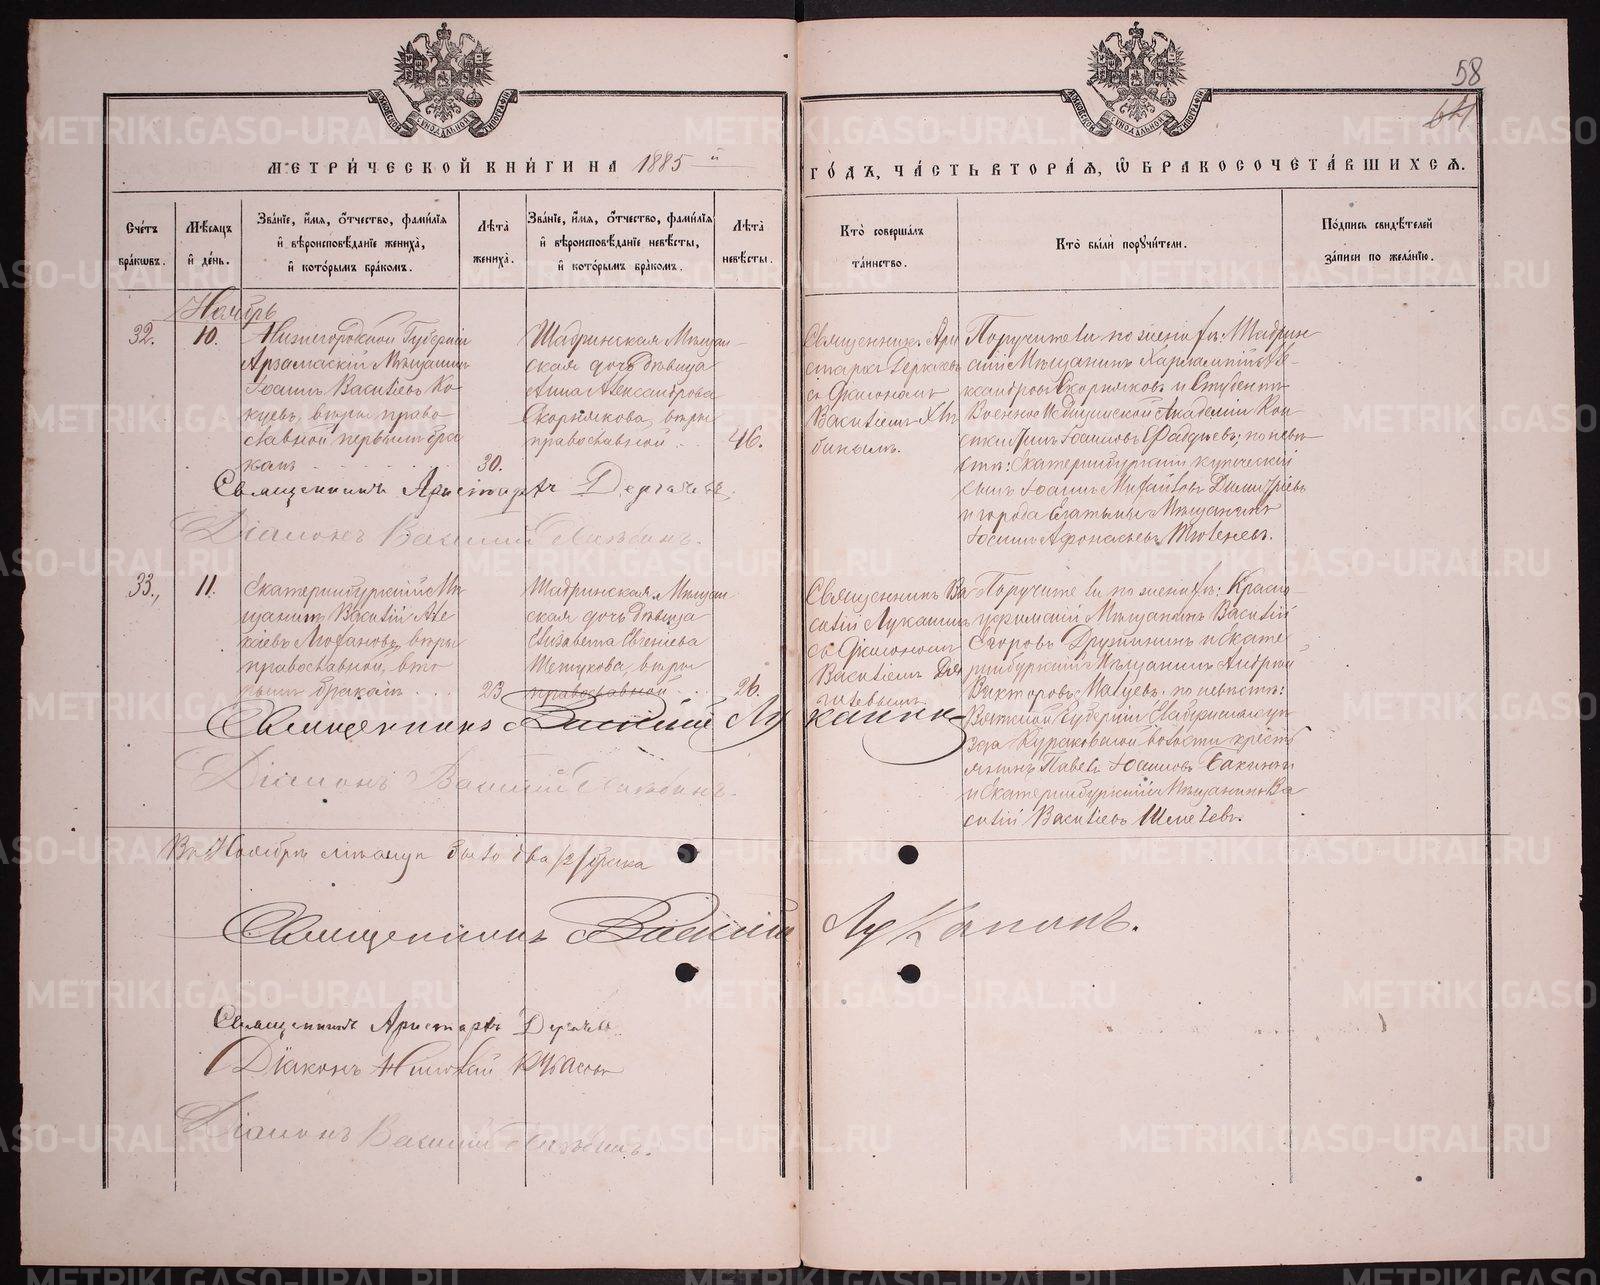 58
64
МЕТРИ́ЧЕСКОЙ КНИ́ГИ НА 1885й
ГО́ДЪ, ЧА́СТЬ ВТОРА́Ѧ, Ѽ БРАКОСОЧЕТА́ВШИХСѦ.
Сче́тъ бра́кѡвъ.
Мѣ́сѧцъ и҆ де́нь.
Зва́нїе, и҆́мѧ, ѻ҆́тчество, фами́лїѧ и҆ вѣроисповѣ́данїе жениха̀, и҆ кото́рымъ бра́комъ.
Лѣ́та жениха̀.
Зва́нїе, и҆́мѧ, ѻ҆́тчество, фами́лїѧ и҆ вѣроисповѣ́данїе невѣ́сты, и҆ кото́рымъ бра́комъ.
Лѣ́та невѣ́сты.
Кто̀ соверша́лъ та́инство.
Кто̀ бы́ли поручи́тели.
По́дпись свидѣ́телей за́писи по жела́нїю.
Ноябрь
32.
10.
Нижегородской Губерніи
Арзамаскій Мѣщанинъ
Іоаннъ Васильевъ Ко-
куевъ, вѣры право-
славной первымъ бра
комъ
30.
Шадринская Мѣщан-
ская дочь дѣвица
Анна Александрова
Скорнякова, вѣры
православной
46.
Священникъ Ари
стархъ Дергачевъ
съ Діакономъ
Василіемъ
Поручители по женихѣ: Шадрин
скій Мѣщанинъ Харлампій Але-
ксандровъ Скорняковъ и Студентъ
Военно Медицинской Академіи Кон
стантинъ Іоанновъ Фаддѣевъ; по невѣ
стѣ: Екатеринбургскій купеческій
сынъ Іоаннъ Михайловъ Димитріевъ
и города Елатьмы Мѣщанинъ
Іоаннъ Афонасьевъ Тюленевъ.
Священникъ Аристархъ Дергачевъ.
Діаконъ Василій
33.
11.
Екатеринбургскій Мѣ
щанинъ Василій Але
ксѣевъ Агафановъ, вѣры
православной, вто
рымъ бракомъ
23
Шадринская Мѣщан
ская дочь дѣвица
Елизавета Евгеніева
вѣры
православной
26.
Священникъ Ва
силій Луканинъ
съ Діакономъ
Василіемъ
Поручители по женихѣ: Красно
уфимскій Мѣщанинъ Василій
Егоровъ Дружининъ и Екате
ринбургскій Мѣщанинъ Андрей
Викторовъ по невѣстѣ:
Вятской Губерніи Елабужскаго уѣ
зда Кураковской волости крестъ
янинъ Павелъ Іоанновъ Бакинъ
и Екатеринбургскій Мѣщанинъ Ва
силій Васильевъ Шмелевъ.
Священникъ Василій Луканинъ
Діаконъ Василій
Въ Ноябрѣ мѣсяцѣ было два /2/ брака
Священникъ Василій Луканинъ.
Священникъ Аристархъ Дергачевъ
Діаконъ Николай Кубасовъ
Діаконъ Василій
METRIKI.GASO-URAL.RU